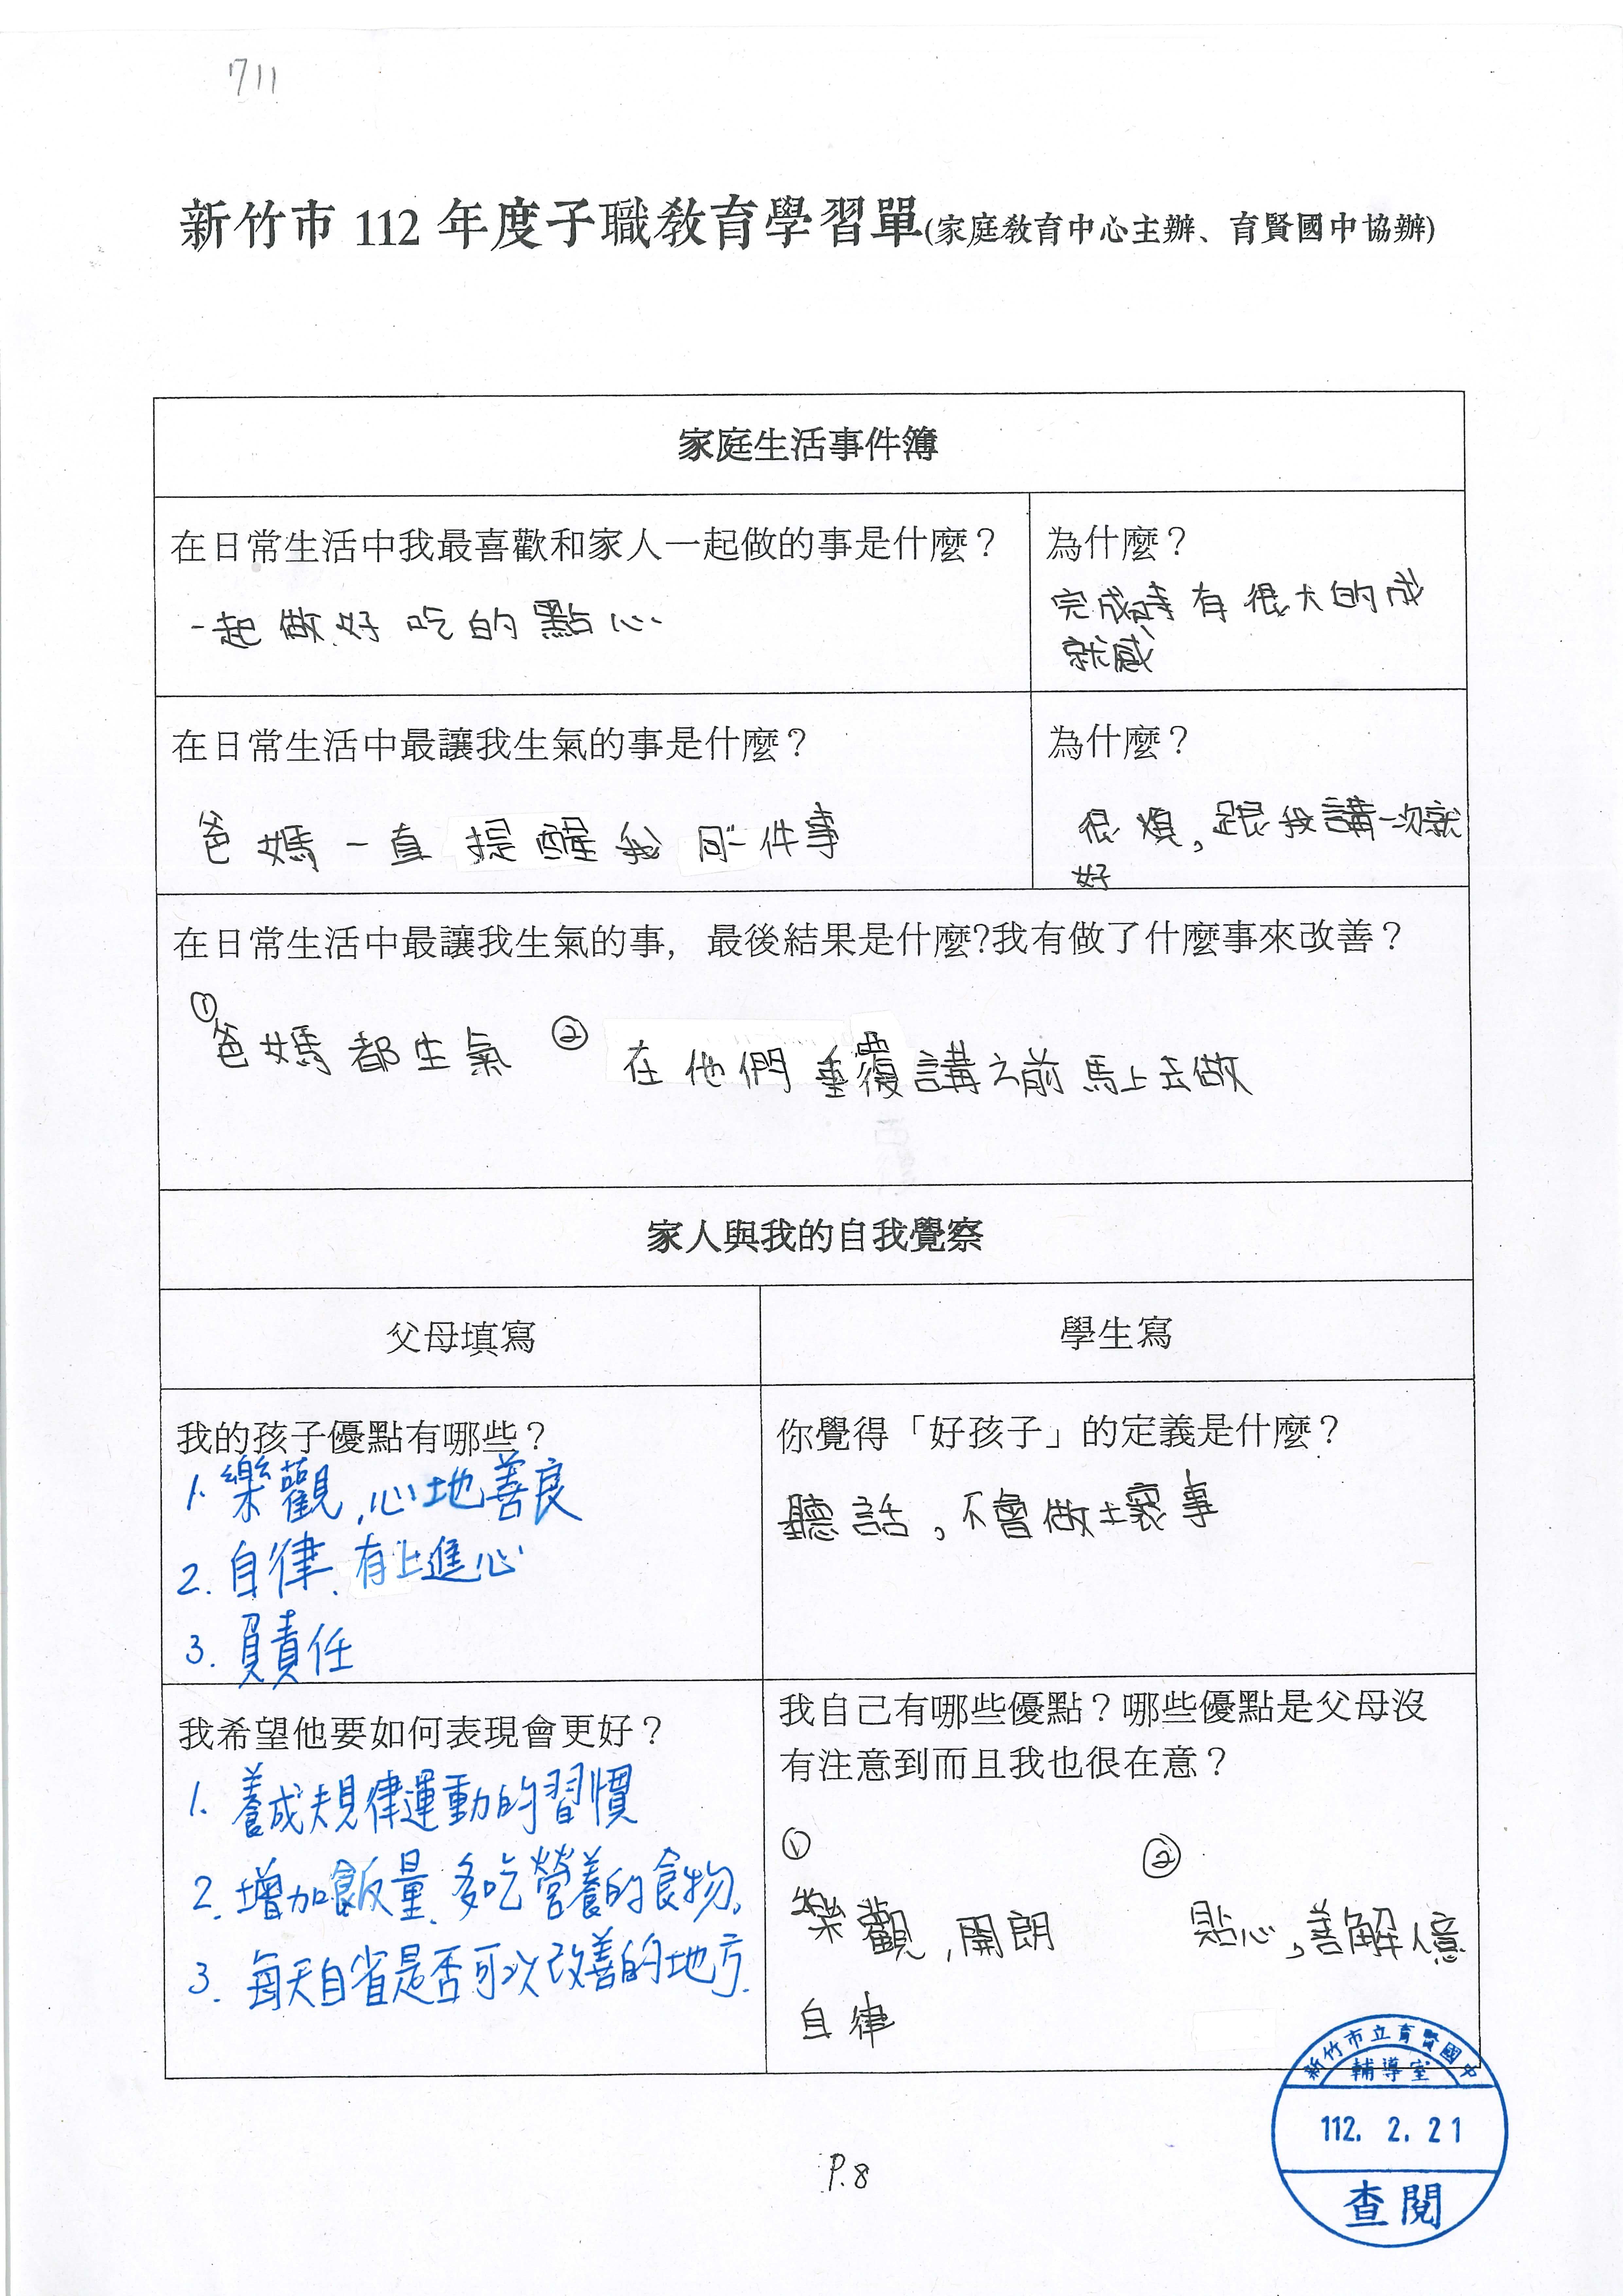 711
新竹市 112 年度子職教育學習單(家庭教育中心主辦、育賢國中協辦)
家庭生活事件簿
在日常生活中我最喜歡和家人一起做的事是什麼？
一起做好吃的點心
為什麼？
完成時有很大的成
就感
在日常生活中最讓我生氣的事是什麼？
爸媽一直提醒我同一件事
為什麼？
很煩，跟我講一次就
好
在日常生活中最讓我生氣的事，最後結果是什麼?我有做了什麼事來改善？
① 爸媽都生氣 ② 在他們重覆講之前馬上去做
家人與我的自我覺察
父母填寫
學生寫
我的孩子優點有哪些？
1. 樂觀,心地善良
2. 自律、有上進心
3. 負責任
你覺得「好孩子」的定義是什麼？
聽話，不會做壞事
我希望他要如何表現會更好？
1. 養成規律運動的習慣
2. 增加飯量、多吃營養的食物。
3. 每天自省是否可以改善的地方.
我自己有哪些優點？哪些優點是父母沒
有注意到而且我也很在意？
① ②
樂觀,開朗 貼心，善解人意
自律
新竹市立育賢國中
輔導室
112. 2. 21
查閱
P.8